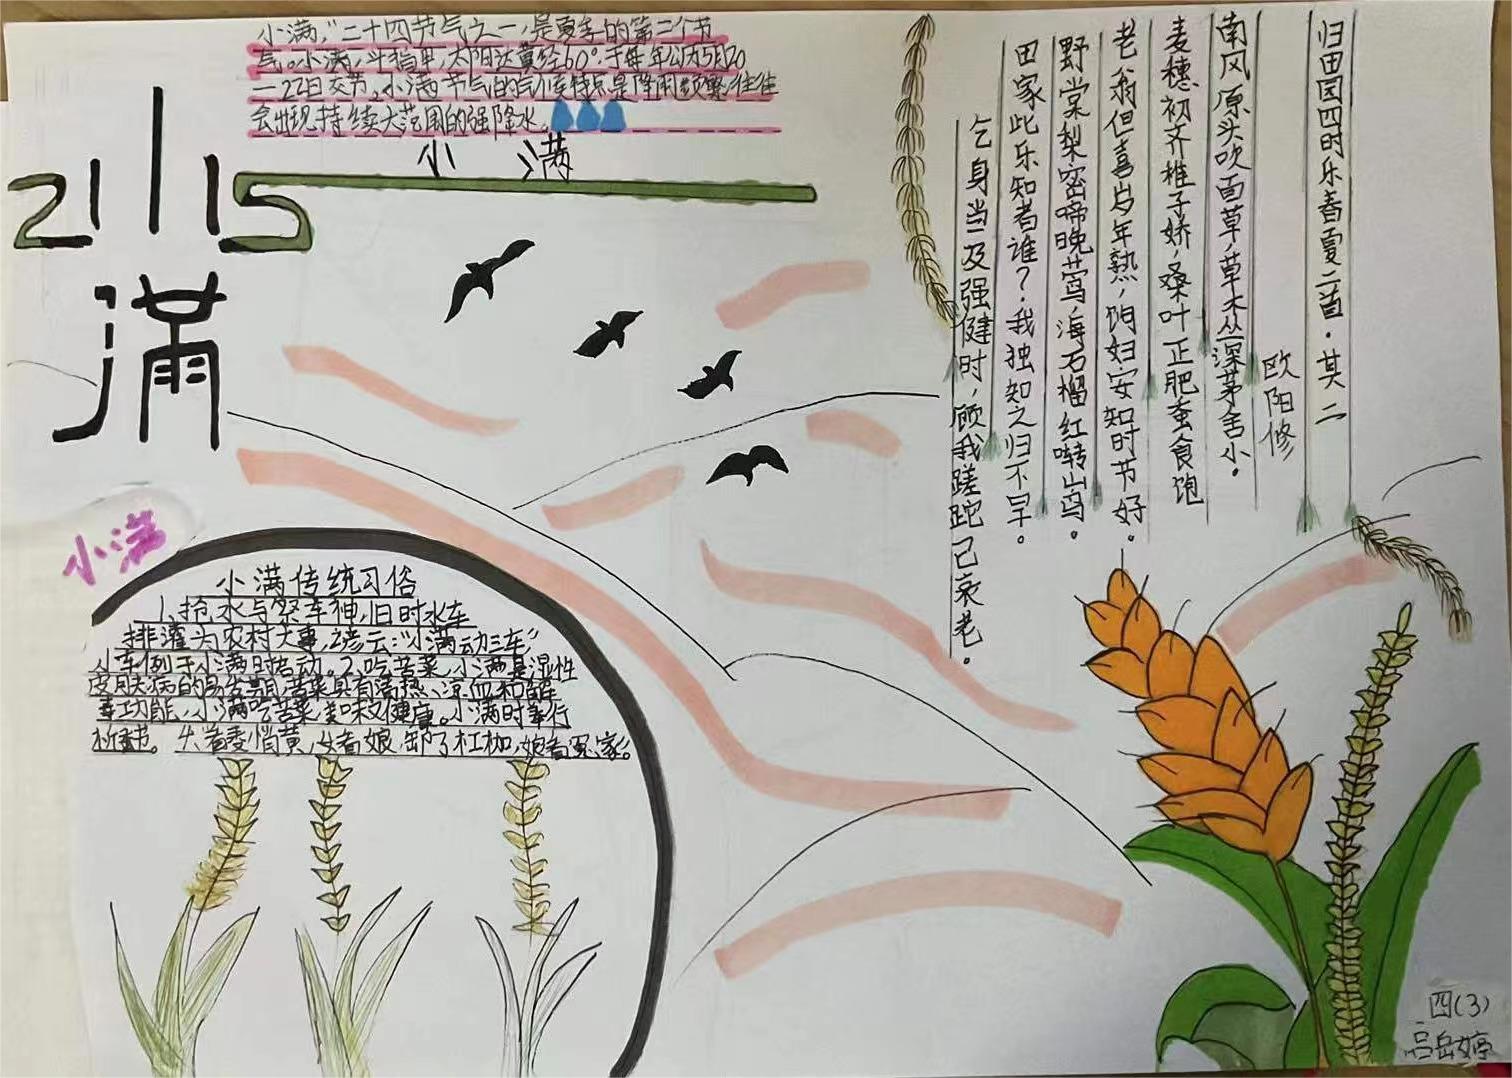 小满，二十四节气之一，是夏季的第二个节
气。小满，斗指甲，太阳达黄经60°，于每年公历5月20
—22日交节。小满节气的气候特点是降雨频繁，往往
会出现持续大范围的强降水。
小 满
小
满
小满
小满传统习俗
1、抢水与祭车神，旧时水车
排灌为农村大事，谚云："小满动三车"
水车例于小满时启动。2、吃苦菜，小满是湿性
皮肤病的易发期，苦菜具有清热、凉血和解
毒功能，小满吃苦菜，美味又健康。小满时举行
归田园四时乐春夏二首·其二
欧阳修
南风原头吹面草，草木丛深茅舍小。
麦穗初齐稚子娇，桑叶正肥蚕食饱
老翁但喜岁年熟，饷妇安知时节好。
野棠梨密啼晚莺，海石榴红啭山鸟。
田家此乐知者谁？我独知之归不早。
乞身当及强健时，顾我蹉跎已衰老。
四(3)
吕岳婷